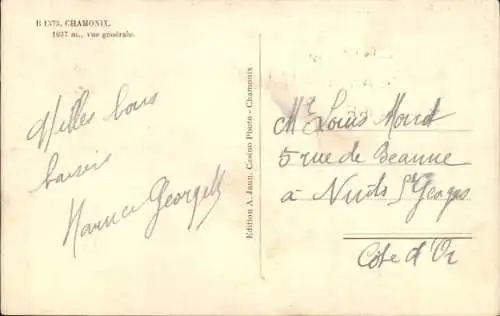 B 1573. CHAMONIX.
1037 m., vue générale.
Milles bons
baisers
Maurice Georgette
Edition A. Jaun, Casino Photo - Chamonix
Mr Louis Morot
5 rue de Beaune
à Nuits St Georges
Côte d'Or